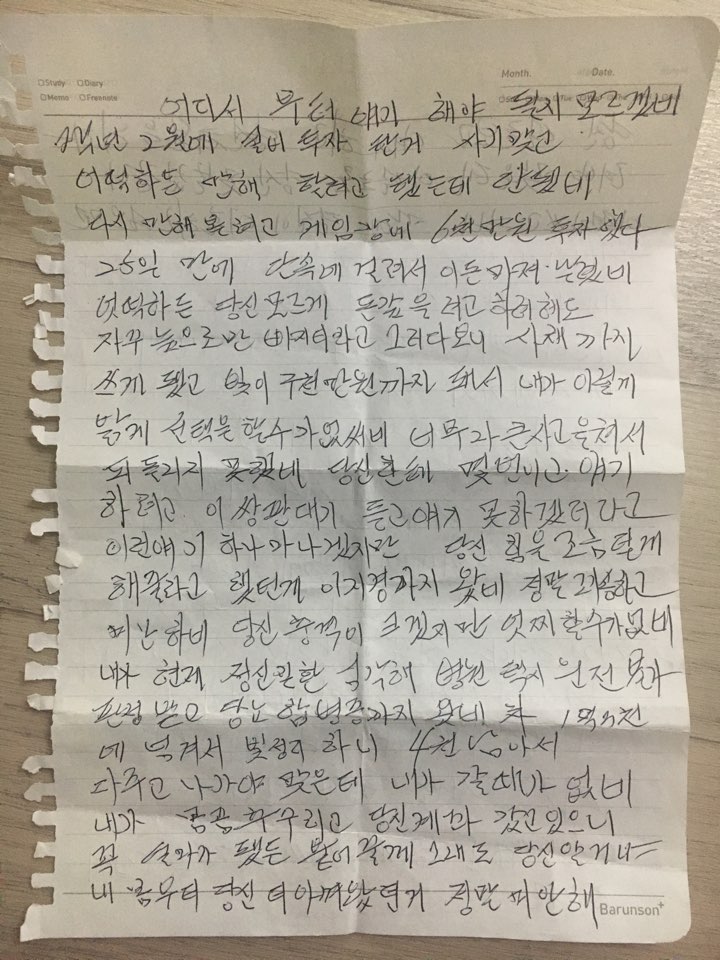 □Study □Diary
□Memo □Freenote
Month. Date.
어디서 부터 얘기 해야 될지 모르겠네
작년 2월에 설비 투자 한거 사기 맞고
어떡하든 만해 할려고 했는데 안됐네
다시 만해 볼려고 게임장에 6천만원 투자했다
26일 만에 단속에 걸려서 이돈마져 날렸네
어떡하든 당신모르게 돈갚을려고 하려해도
자꾸 늪으로만 빠지더라고 그러다보니 사채까지
쓰게 됐고 빚이 구천만원까지 돼서 내가 이렇게
밖에 선택을 할수가 없써네 너무나 큰사고을 쳐서
되돌리지 못했네 당신한테 몇번이고 얘기
하려고 이 쌍판대기 들고 얘기 못하겠더라고
이런얘기 하나가나겠지만 당신 힘을 조금 덜게
해줄라고 했던게 이지경까지 왔네 정말 괴롭하고
미안하네 당신 충격이 크겠지만 엇찌할수가 없네
내가 현재 정신질환 심각해 병원 택시 운전 불가
판정 받고 당뇨 합병증까지 왔네 차 1억2천
에 넘겨서 빚정리 하니 4천 남아서
다주고 나가야 맞은데 내가 갈때가 없네
내가 꼼꼼 하구리고 당신께 갖고 있으니
꼭 결과가 됐든 붙어 갈께 그래도 당신알거냐
내 몸부터 당신 더아껴왔던거 정말 미안해
Barunson+